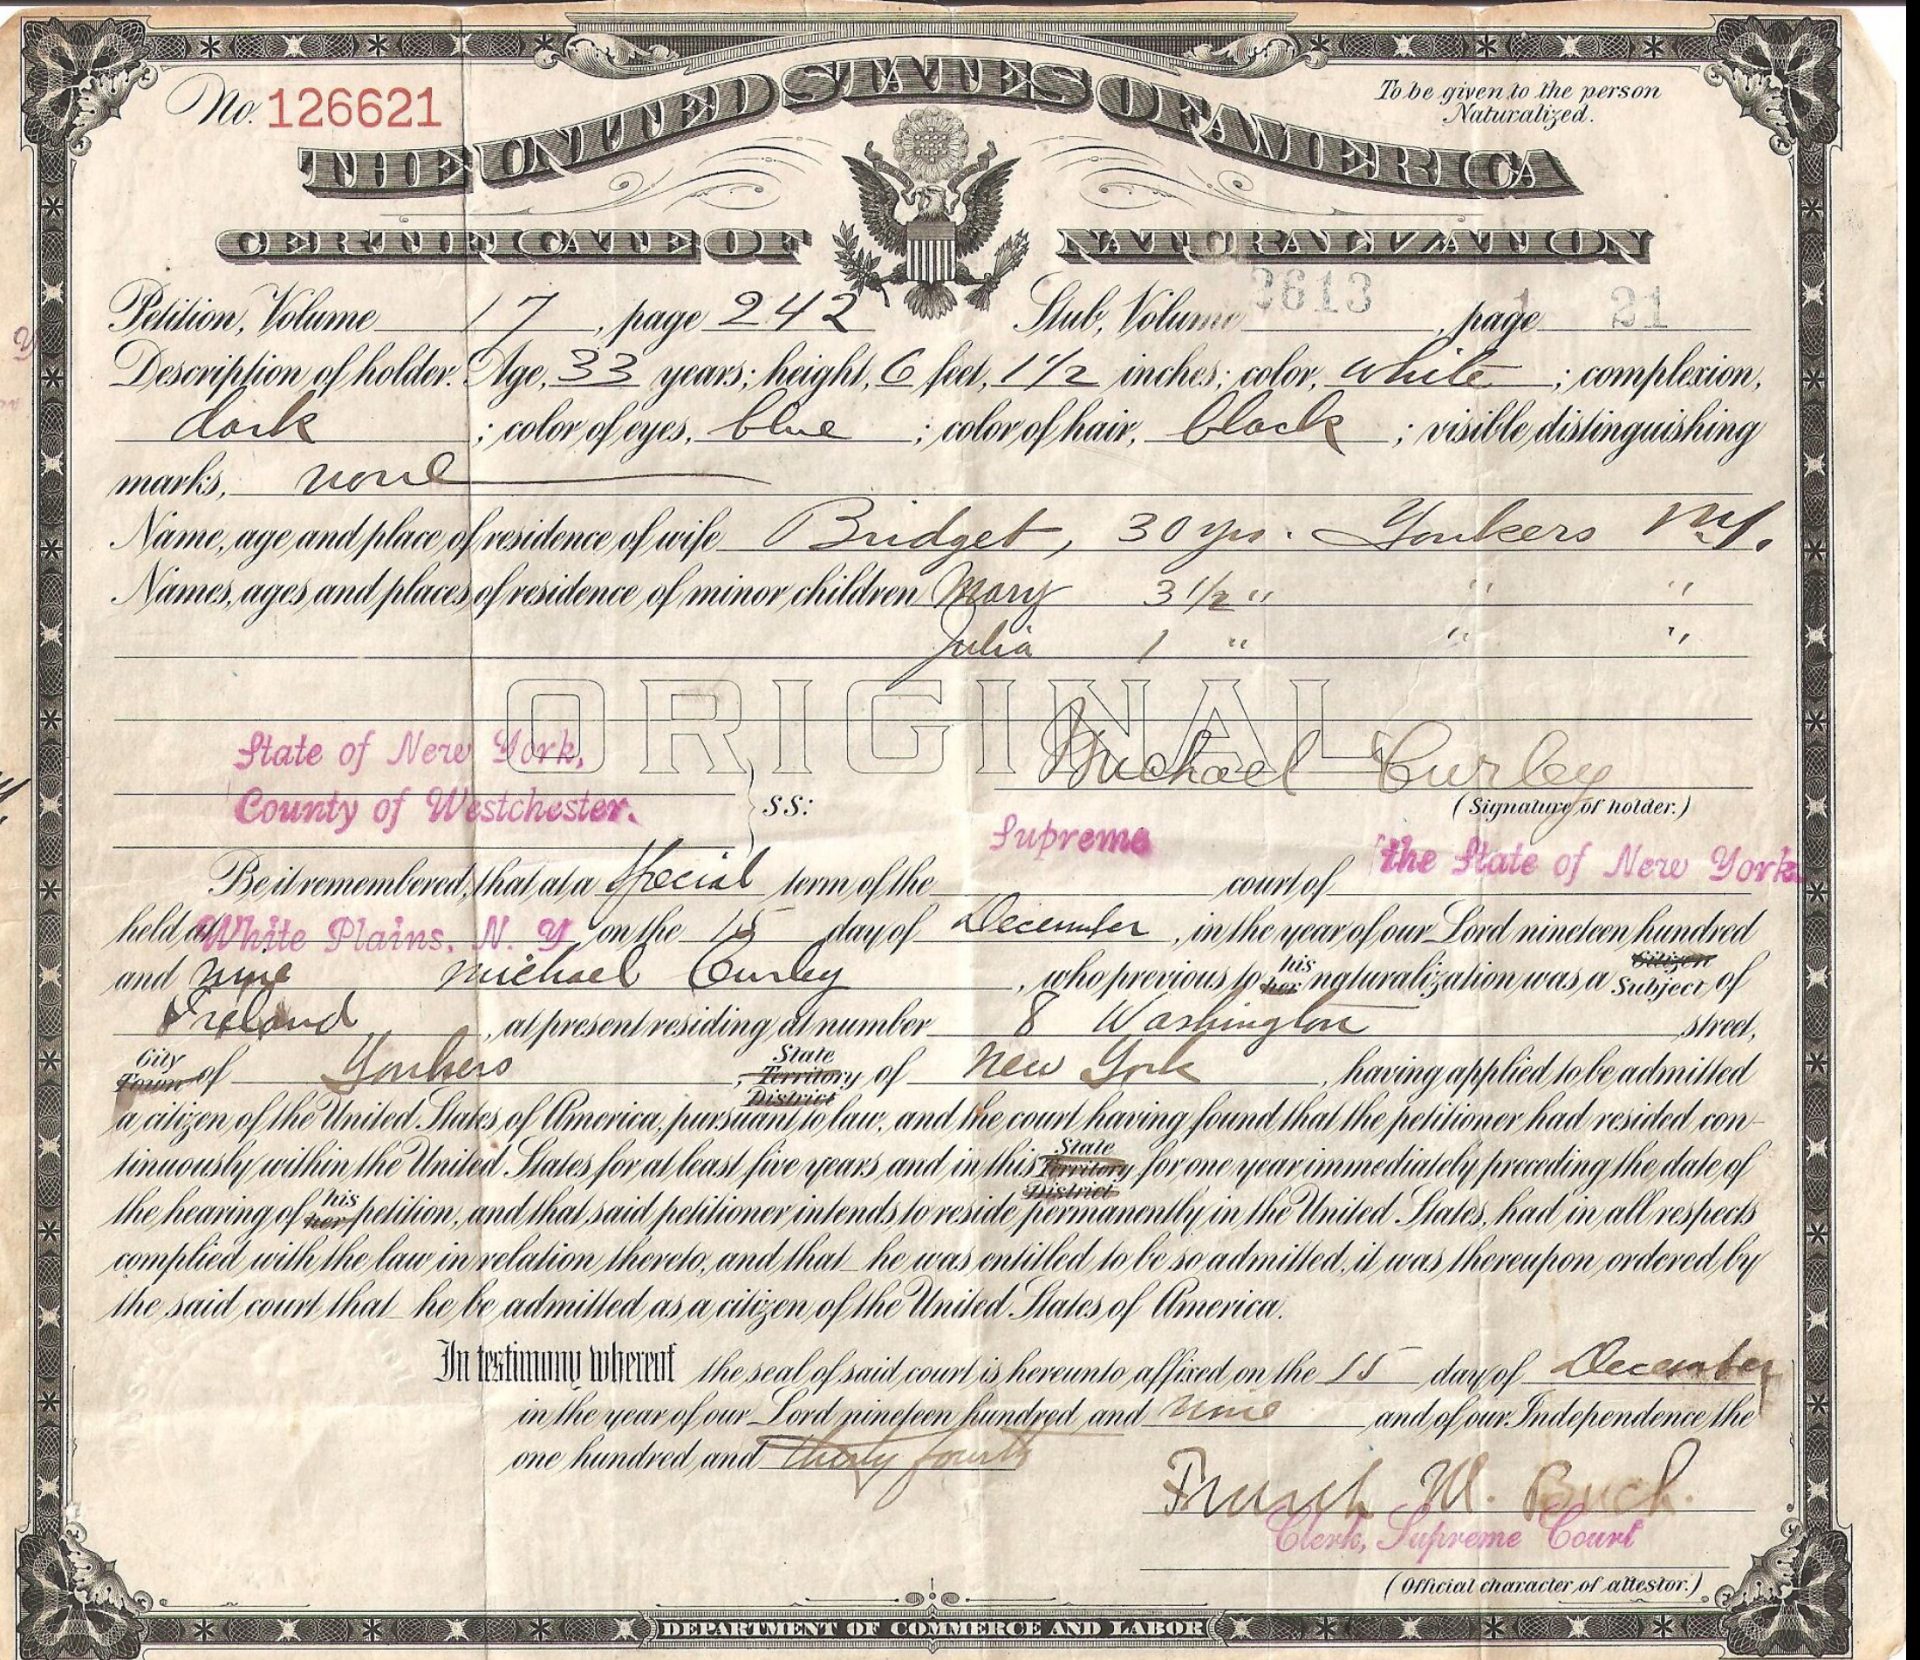 No. 126621
To be given to the person
Naturalized.
THE UNITED STATES OF AMERICA
CERTIFICATE OF NATURALIZATION
Petition, Volume 17, page 242 Stub, Volume 3613, page 21
Description of holder. Age, 33 years; height, 6 feet, 1 1/2 inches; color, white; complexion,
dark; color of eyes, blue; color of hair, black; visible distinguishing
marks, none
Name, age and place of residence of wife Bridget, 30 yrs. Yonkers N.Y.
Names, ages and places of residence of minor children Mary 3 1/2 " " "
Julia 1 " " "
ORIGINAL
State of New York,
County of Westchester. } SS:
Michael Curley
(Signature of holder.)
Be it remembered, that at a Special term of the Supreme court of the State of New York.
held at White Plains, N. Y on the 15 day of December, in the year of our Lord nineteen hundred
and nine Michael Curley, who previous to his her naturalization was a Citizen Subject of
Ireland, at present residing at number 8 Washington street,
City Town of Yonkers, State Territory District of New York, having applied to be admitted
a citizen of the United States of America, pursuant to law, and the court having found that the petitioner had resided con-
tinuously within the United States for at least five years and in this State Territory District for one year immediately preceding the date of
the hearing of his her petition, and that said petitioner intends to reside permanently in the United States, had in all respects
complied with the law in relation thereto, and that he was entitled to be so admitted, it was thereupon ordered by
the said court that he be admitted as a citizen of the United States of America.
In testimony whereof the seal of said court is hereunto affixed on the 15 day of December
in the year of our Lord nineteen hundred and nine and of our Independence the
one hundred and thirty fourth
Frank M. Buck.
Clerk, Supreme Court
(Official character of attestor.)
DEPARTMENT OF COMMERCE AND LABOR